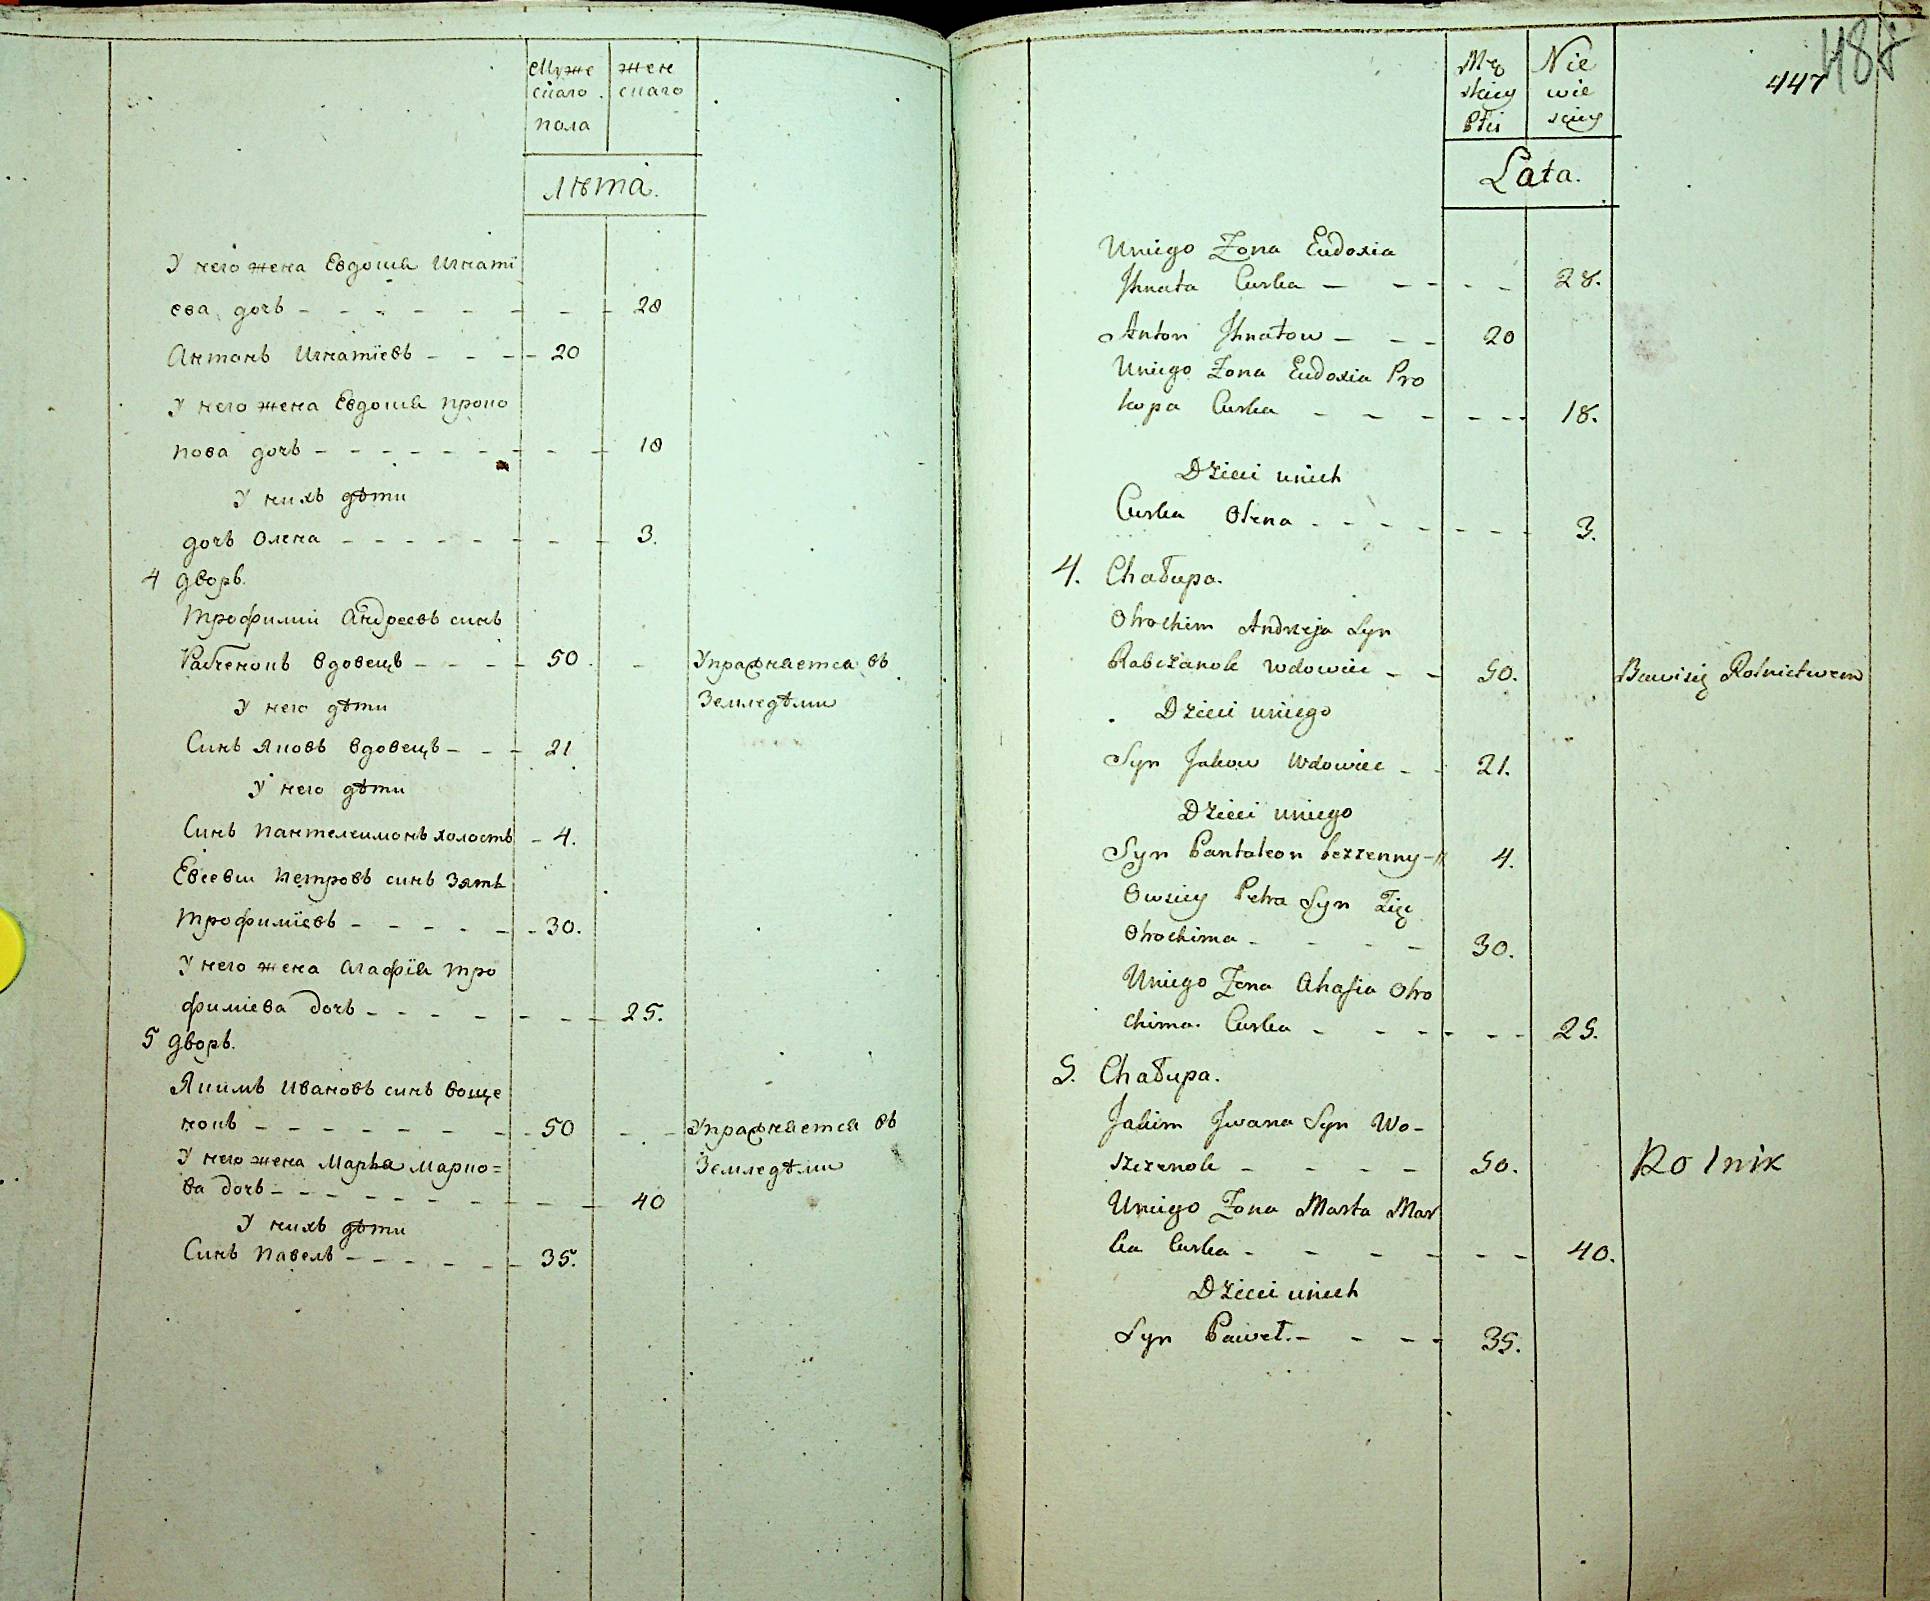 Муже
скаго
пола
жен
скаго
лѣта.
У него жена Евдокия Игнатї
ева дочь - - - - - - - - - 28
Антонъ Игнатїевъ - - - - 20
У него жена Евдокия Проко
пова дочь - - - - - - - - - 18
У нихъ дѣти
дочь Олена - - - - - - - - 3.
4 дворъ.
Трофимий Андреевъ синъ
Рабченокъ вдовецъ - - - - 50. - Упражняется въ
Земледѣлии
У него дѣти
Синъ Яковъ вдовецъ - - - 21
У него дѣти
Синъ Пантелеимонъ холостъ - 4.
Евсевии Петровъ синъ Зять
Трофимїевъ - - - - - - 30.
У него жена Агафїя Тро
фимїева дочь - - - - - - - 25.
5 дворъ.
Якимъ Ивановъ синъ Воще
нокъ - - - - - - - - - 50 - - Упражняется въ
Земледѣлии
У него жена Марѳа Марко=
ва дочь - - - - - - - - - 40
У нихъ дѣти
Синъ Павелъ - - - - - - 35.
Mę
skiey
Płci
Nie
wie
sciey
447
Lata.
Uniego Żona Eudoxia
Ihnata Curka - - - - - 28.
Anton Ihnatow - - - 20
Uniego Żona Eudoxia Pro
kopa Curka - - - - - - 18.
Dzieci unich
Curka Olena - - - - - - - 3.
4. Chałupa.
Otrochim Andrzeja Syn
Rabczanok Wdowiec - - 50. Bawisię Rolnictwem
Dzieci uniego
Syn Jakow Wdowiec - - 21.
Dzieci uniego
Syn Pantaleon bezzenny - 4.
Owsiey Petra Syn Zięć
Otrochima - - - - 30.
Uniego Żona Ahafia Otro
chima Curka - - - - - - 25.
5. Chałupa.
Jakim Jwana Syn Wo-
szczenok - - - - 50. Rolnik
Uniego Żona Marta Mar
ka Curka - - - - - - 40.
Dzieci unich
Syn Paweł. - - - - 35.